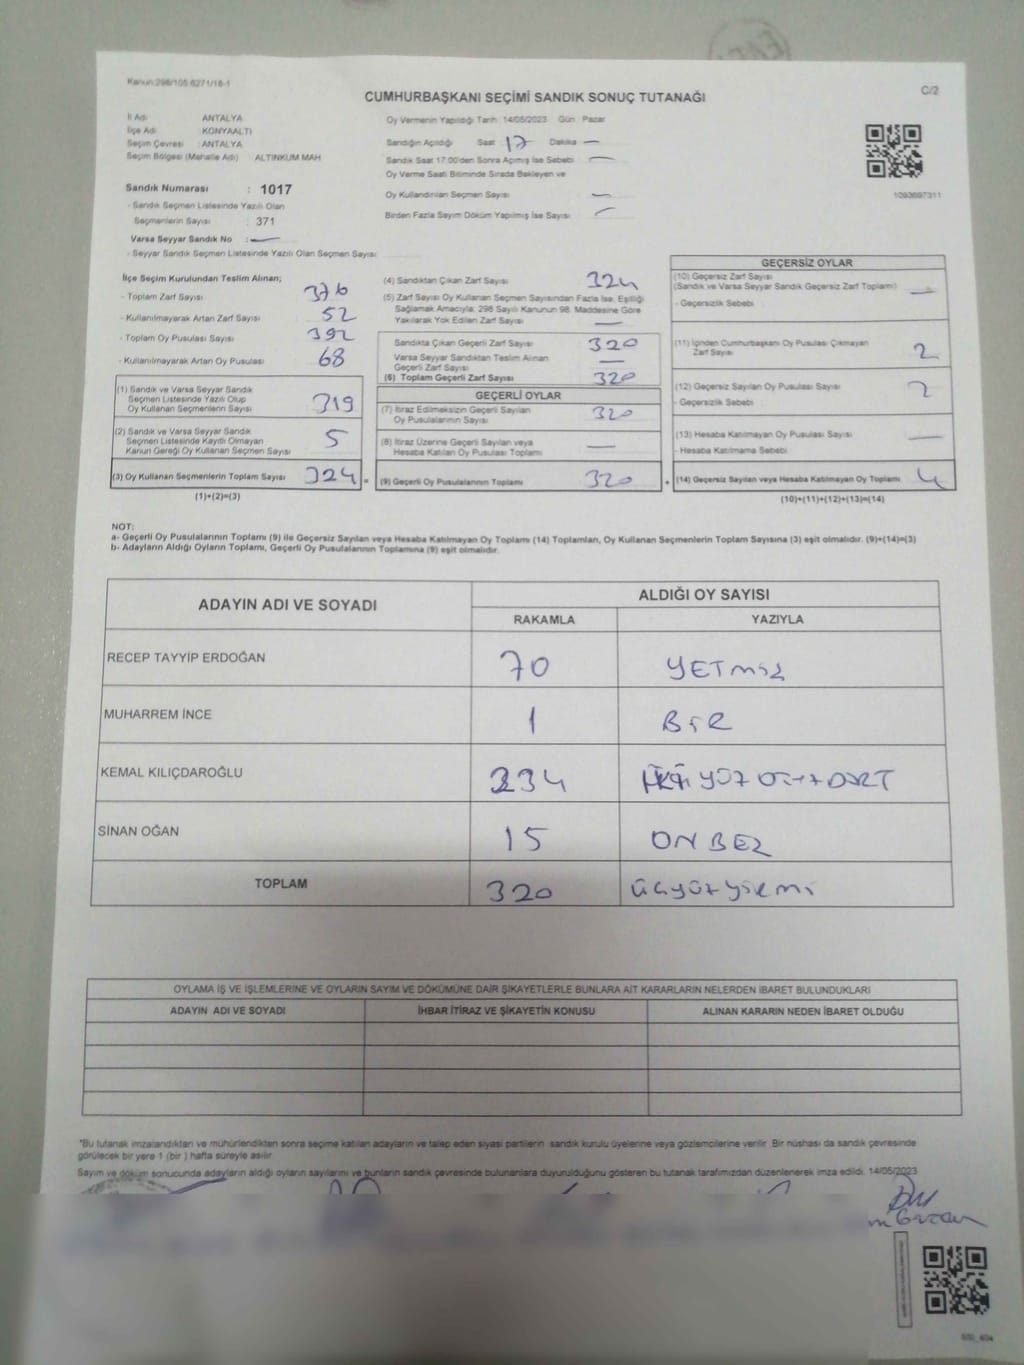 Kanun:298/105,6271/16-1
CUMHURBAŞKANI SEÇİMİ SANDIK SONUÇ TUTANAĞI
C/2
İl Adı ANTALYA
İlçe Adı KONYAALTI
Seçim Çevresi : ANTALYA
Seçim Bölgesi (Mahalle Adı) ALTINKUM MAH
Sandık Numarası : 1017
- Sandık Seçmen Listesinde Yazılı Olan
Seçmenlerin Sayısı : 371
Varsa Seyyar Sandık No : —
- Seyyar Sandık Seçmen Listesinde Yazılı Olan Seçmen Sayısı
Oy Vermenin Yapıldığı Tarih : 14/05/2023 Gün : Pazar
Sandığın Açıldığı Saat : 17 Dakika —
Sandık Saat 17:00'den Sonra Açılmış İse Sebebi —
Oy Verme Saati Bitiminde Sırada Bekleyen ve
Oy Kullandırılan Seçmen Sayısı —
Birden Fazla Sayım Döküm Yapılmış İse Sayısı —
1093697311
İlçe Seçim Kurulundan Teslim Alınan;
- Toplam Zarf Sayısı 376
- Kullanılmayarak Artan Zarf Sayısı 52
- Toplam Oy Pusulası Sayısı 392
- Kullanılmayarak Artan Oy Pusulası 68
(1) Sandık ve Varsa Seyyar Sandık
Seçmen Listesinde Yazılı Olup
Oy Kullanan Seçmenlerin Sayısı 319
(2) Sandık ve Varsa Seyyar Sandık
Seçmen Listesinde Kayıtlı Olmayan
Kanun Gereği Oy Kullanan Seçmen Sayısı 5
(3) Oy Kullanan Seçmenlerin Toplam Sayısı 324 =
(1)+(2)=(3)
(4) Sandıktan Çıkan Zarf Sayısı 324
(5) Zarf Sayısı Oy Kullanan Seçmen Sayısından Fazla İse, Eşitliği
Sağlamak Amacıyla, 298 Sayılı Kanunun 98. Maddesine Göre
Yakılarak Yok Edilen Zarf Sayısı —
Sandıkta Çıkan Geçerli Zarf Sayısı 320
Varsa Seyyar Sandıktan Teslim Alınan
Geçerli Zarf Sayısı —
(6) Toplam Geçerli Zarf Sayısı 320
GEÇERLİ OYLAR
(7) İtiraz Edilmeksizin Geçerli Sayılan
Oy Pusulalarının Sayısı 320
(8) İtiraz Üzerine Geçerli Sayılan veya
Hesaba Katılan Oy Pusulası Toplamı —
(9) Geçerli Oy Pusulalarının Toplamı 320 +
GEÇERSİZ OYLAR
(10) Geçersiz Zarf Sayısı
(Sandık ve Varsa Seyyar Sandık Geçersiz Zarf Toplamı) —
- Geçersizlik Sebebi :
(11) İçinden Cumhurbaşkanı Oy Pusulası Çıkmayan
Zarf Sayısı 2
(12) Geçersiz Sayılan Oy Pusulası Sayısı 2
- Geçersizlik Sebebi :
(13) Hesaba Katılmayan Oy Pusulası Sayısı —
- Hesaba Katılmama Sebebi
(14) Geçersiz Sayılan veya Hesaba Katılmayan Oy Toplamı 4
(10)+(11)+(12)+(13)=(14)
NOT:
a- Geçerli Oy Pusulalarının Toplamı (9) ile Geçersiz Sayılan veya Hesaba Katılmayan Oy Toplamı (14) Toplamları, Oy Kullanan Seçmenlerin Toplam Sayısına (3) eşit olmalıdır. (9)+(14)=(3)
b- Adayların Aldığı Oyların Toplamı, Geçerli Oy Pusulalarının Toplamına (9) eşit olmalıdır.
ADAYIN ADI VE SOYADI
ALDIĞI OY SAYISI
RAKAMLA YAZIYLA
RECEP TAYYİP ERDOĞAN 70 YETMİŞ
MUHARREM İNCE 1 BİR
KEMAL KILIÇDAROĞLU 234 İKİ YÜZ OTUZ DÖRT
SİNAN OĞAN 15 ON BEŞ
TOPLAM 320 ÜÇ YÜZ YİRMİ
OYLAMA İŞ VE İŞLEMLERİNE VE OYLARIN SAYIM VE DÖKÜMÜNE DAİR ŞİKAYETLERLE BUNLARA AİT KARARLARIN NELERDEN İBARET BULUNDUKLARI
ADAYIN ADI VE SOYADI İHBAR İTİRAZ VE ŞİKAYETİN KONUSU ALINAN KARARIN NEDEN İBARET OLDUĞU
*Bu tutanak imzalandıktan ve mühürlendikten sonra seçime katılan adayların ve talep eden siyasi partilerin sandık kurulu üyelerine veya gözlemcilerine verilir. Bir nüshası da sandık çevresinde
görülecek bir yere 1 (bir ) hafta süreyle asılır.
Sayım ve döküm sonucunda adayların aldığı oyların sayılarını ve bunların sandık çevresinde bulunanlara duyurulduğunu gösteren bu tutanak tarafımızdan düzenlenerek imza edildi. 14/05/2023